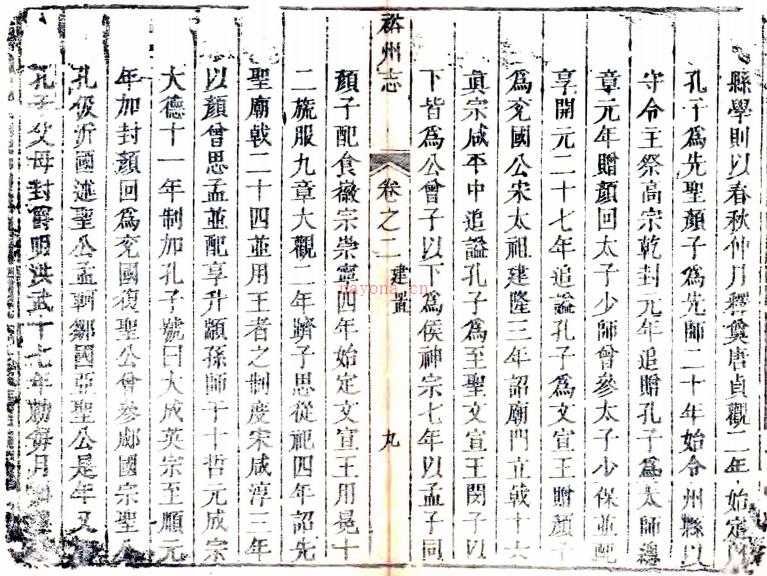 縣學則以春秋仲月釋奠唐貞觀二年始定
孔子爲先聖顏子爲先師二十年始令州縣以
守令主祭高宗乾封元年追贈孔子爲太師總
章元年贈顏回太子少師曾參太子少保並配
享開元二十七年追謚孔子爲文宣王贈顏子
爲兖國公宋太祖建隆三年詔廟門立戟十六
眞宗咸平中追謚孔子爲至聖文宣王閔子以
下皆爲公曾子以下爲侯神宗七年以孟子同
裕州志 卷之二 建置 九
顏子配食徽宗崇寧四年始定文宣王用冕十
二旒服九章大觀二年躋子思從祀四年詔先
聖廟戟二十四並用王者之制度宋咸淳三年
以顏曾思孟並配享升顓孫師于十哲元成宗
大德十一年制加孔子號曰大成英宗至順元
年加封顏回爲兖國復聖公曾參郕國宗聖公
孔伋沂國述聖公孟軻鄒國亞聖公是年又
孔子父母封爵明洪武十七年勅每月
nayona.cn